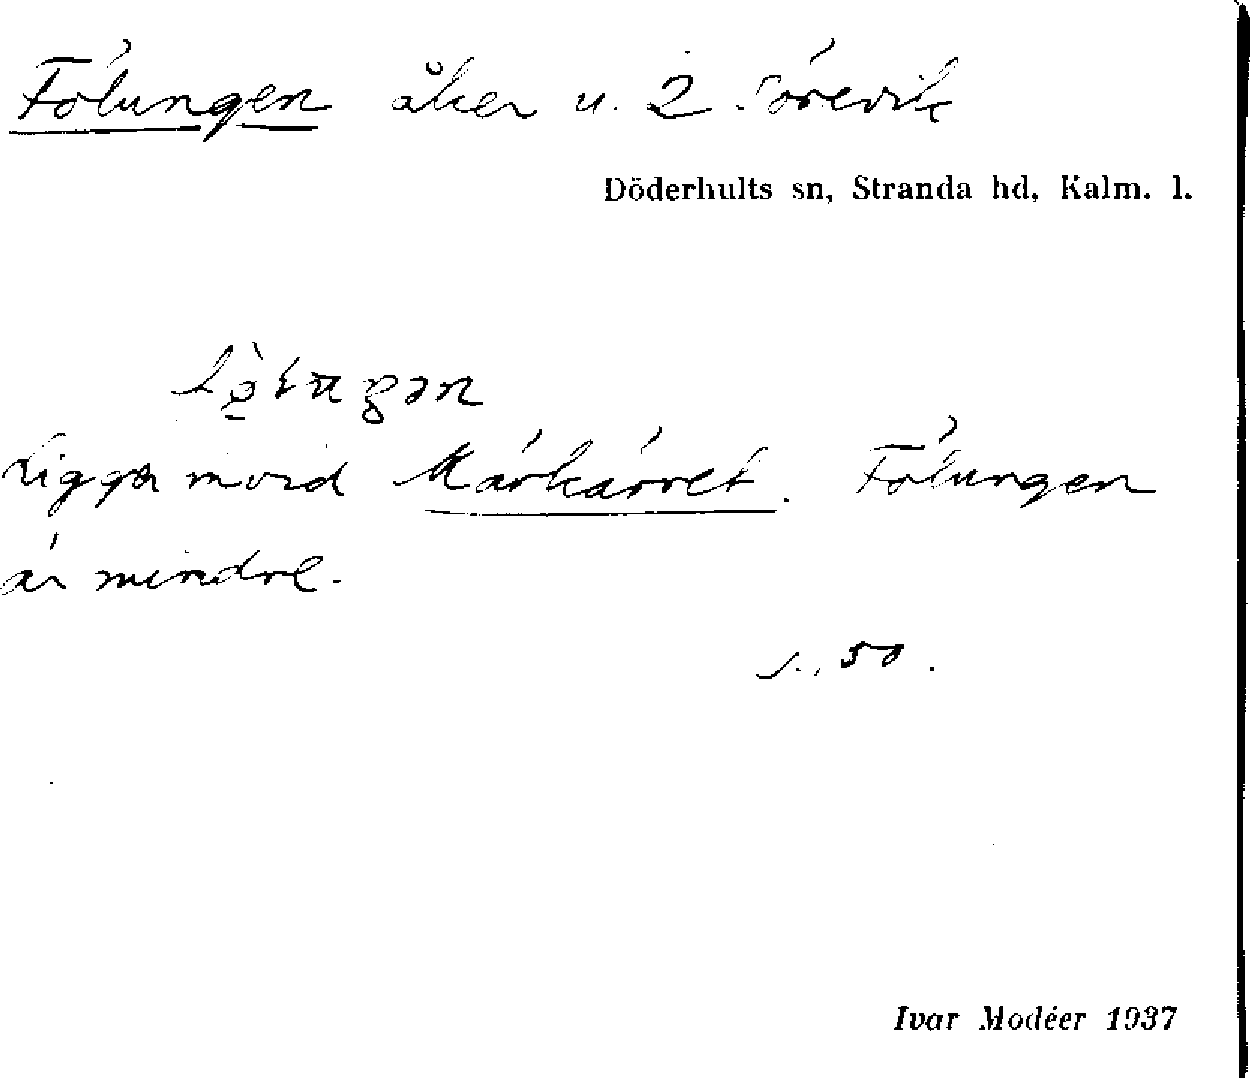 Fölungen åker u. 2 Sörevik
Döderhults sn, Stranda hd, Kalm. l.
Ligger mord Märkärret. Fölungen
är mindre.
s. 50.
Ivar Modéer 1937